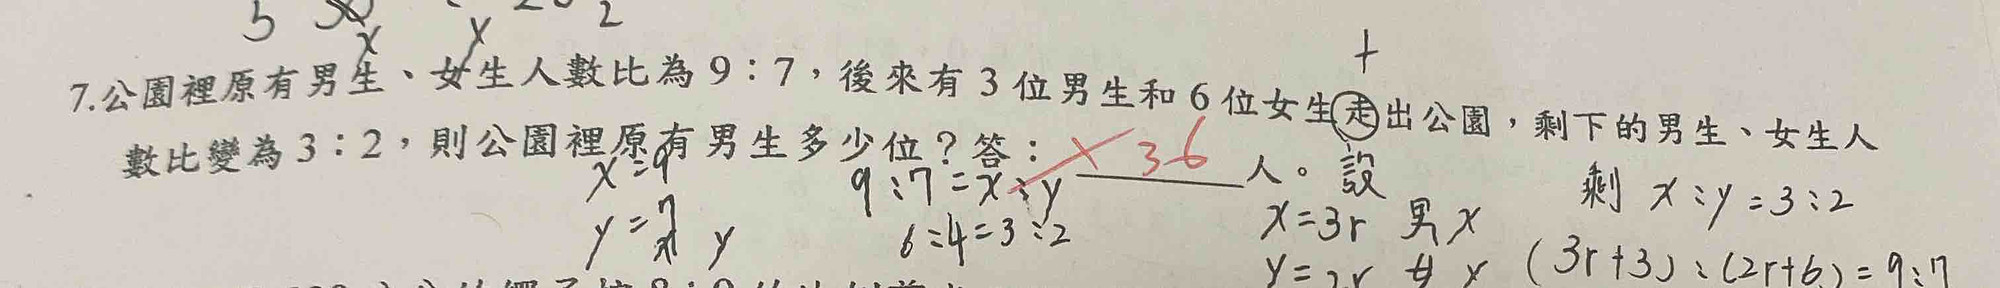 5 30 2
x y
7.公園裡原有男生、女生人數比為 9：7，後來有 3 位男生和 6 位女生走出公園，剩下的男生、女生人
數比變為 3：2，則公園裡原有男生多少位？答： 36 人。
x=9 9:7=x:y 設 剩 x:y=3:2
y=7 y 6:4=3:2 x=3r 男 x
y=2r 女 y (3r+3):(2r+6)=9:7